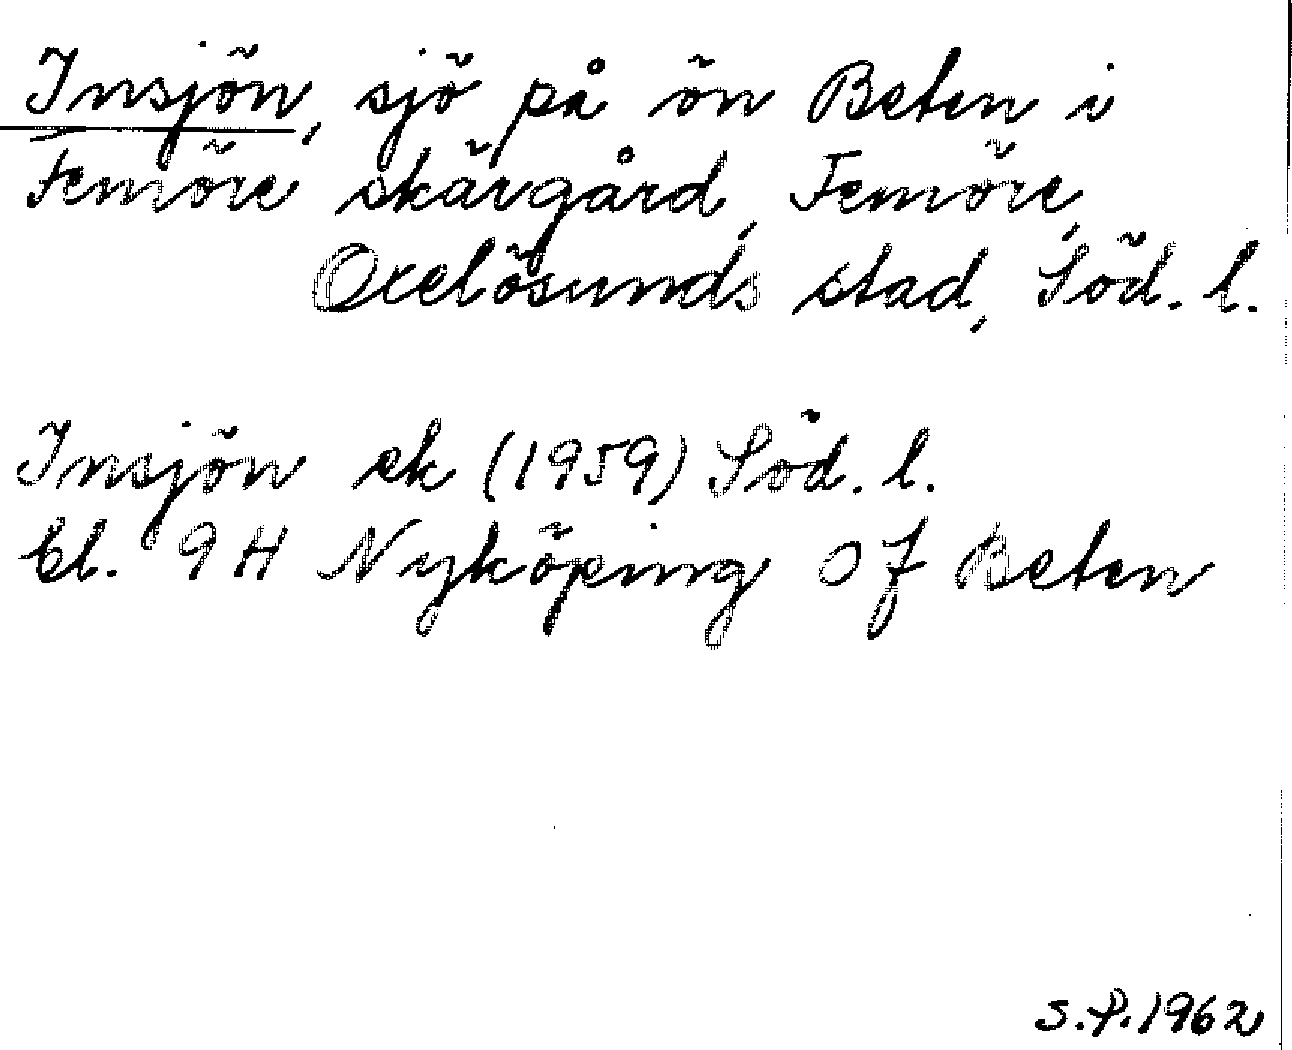 Insjön, sjö på ön Beten i
Femöre skärgård, Femöre,
Oxelösunds stad, Söd. l.
Insjön ek (1959) Söd. l.
bl. 9H Nyköping 0f Beten
S.P. 1962